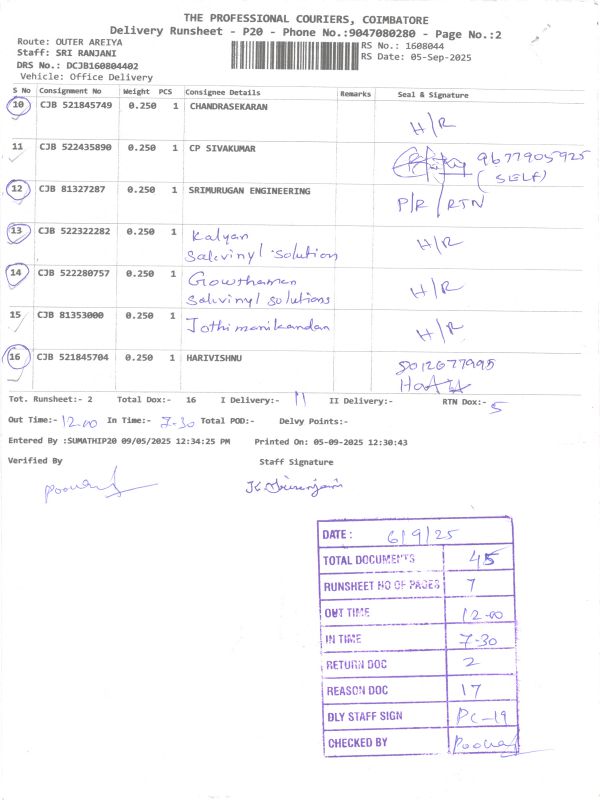 THE PROFESSIONAL COURIERS, COIMBATORE
Delivery Runsheet - P20 - Phone No.:9047080280 - Page No.:2
Route: OUTER AREIYA
Staff: SRI RANJANI
DRS No.: DCJB160804402
Vehicle: Office Delivery
RS No.: 1608044
RS Date: 05-Sep-2025
S No Consignment No Weight PCS Consignee Details Remarks Seal & Signature
10 CJB 521845749 0.250 1 CHANDRASEKARAN H/R
11 CJB 522435890 0.250 1 CP SIVAKUMAR 9677905925 (SELF)
12 CJB 81327287 0.250 1 SRIMURUGAN ENGINEERING P/R/RTN
13 CJB 522322282 0.250 1 Kalyan H/R
Salivinyl Solution
14 CJB 522280757 0.250 1 Gowthaman H/R
Salivinyl Solutions
15 CJB 81353000 0.250 1 Jothimanikandan H/R
16 CJB 521845704 0.250 1 HARIVISHNU 8012677995
Tot. Runsheet:- 2 Total Dox:- 16 I Delivery:- 11 II Delivery:- RTN Dox:- 5
Out Time:- 12.00 In Time:- 7-30 Total POD:- Delvy Points:-
Entered By :SUMATHIP20 09/05/2025 12:34:25 PM Printed On: 05-09-2025 12:30:43
Verified By Staff Signature
DATE : 6/9/25
TOTAL DOCUMENTS 45
RUNSHEET NO OF PAGES 7
OUT TIME 12-00
IN TIME 7-30
RETURN DOC 2
REASON DOC 17
DLY STAFF SIGN PC-19
CHECKED BY